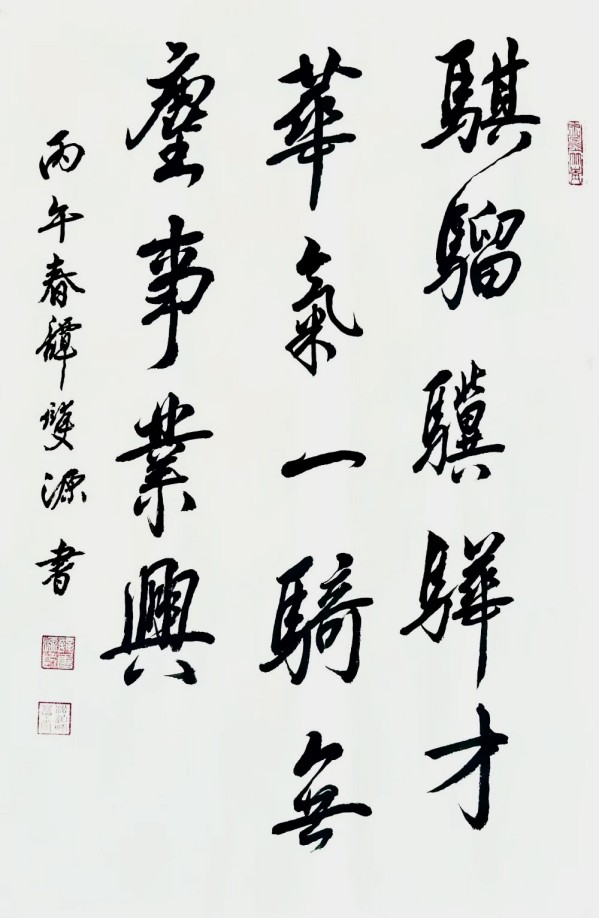 騏騮驥驊才
華氣一騎無
塵事業興
丙午春譚雙源書